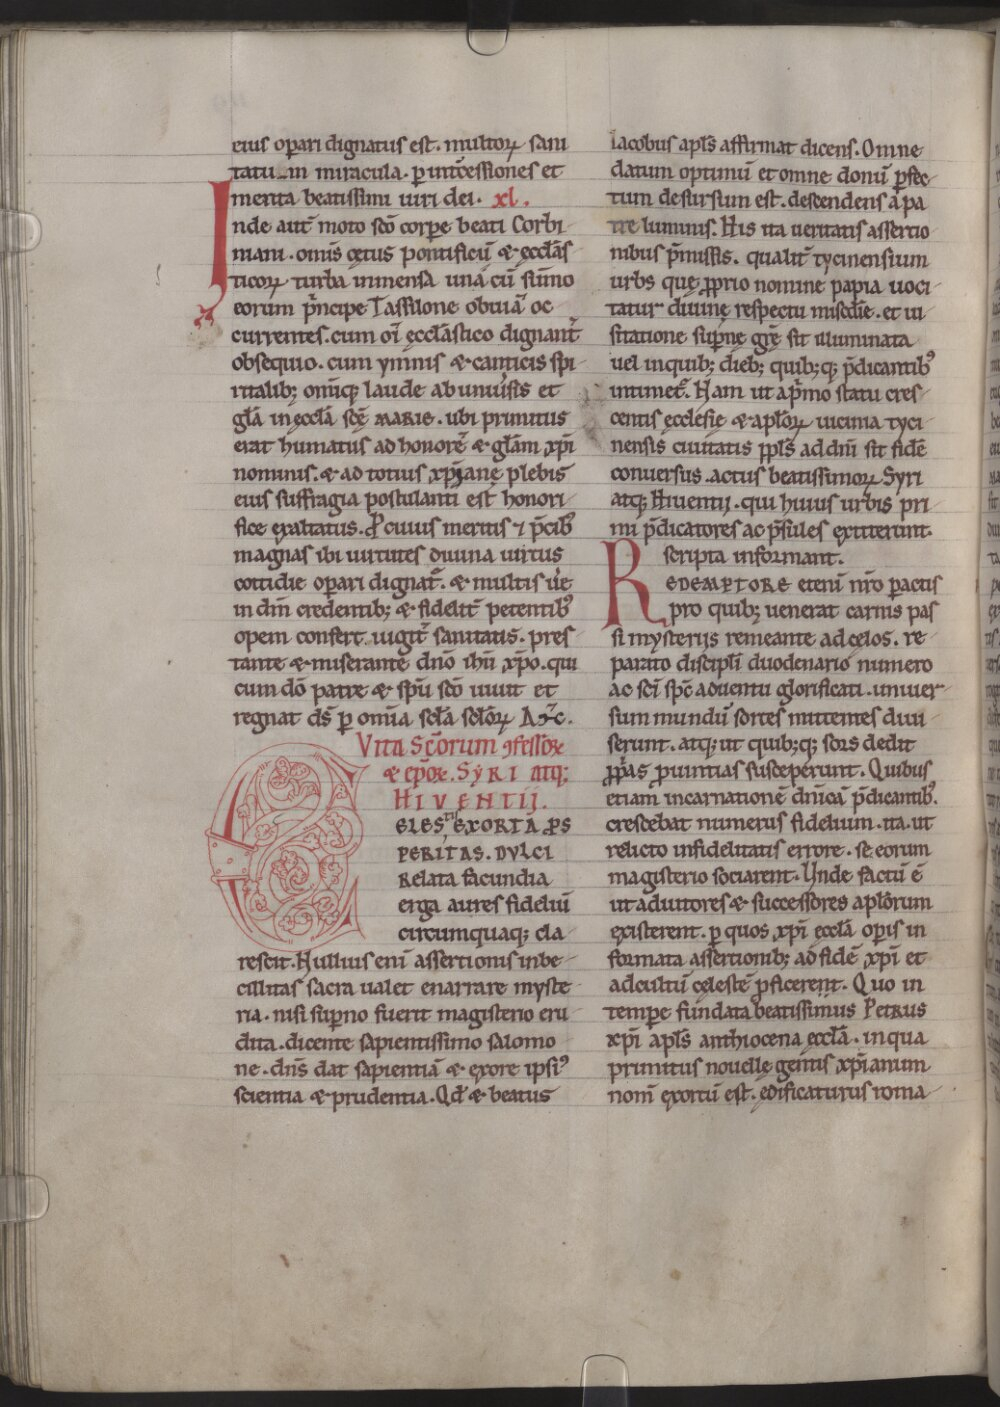 eius oꝑari dignatus est. multoꝝ sani
tatū in miracula. ꝑ int̄cessiones et
merita beatissimi uiri dei. xl.
Inde aut̄ moto sc̄o corpe beati Corbi
niani. omīs cętus pontificū ⁊ eccl̄as
ticoꝝ turba inmensa una cū sūmo
eorum p̄ncipe Tassilone obuiā oc
currentes. cum oī eccl̄astico dignant̄
obsequio. cum ymnis & canticis spi
ritalib; omīq; laude ab uniūsis et
gl̄a in eccl̄a sc̄ę MARIE. ubi primitus
erat humatus ad honorē & gl̄am xp̄i
nominis. & ad totius xp̄ianę plebis
eius suffragia postulanti est honori
fice exaltatus. Ꝑ cuius meritis ⁊ p̄cib᾽
magnas ibi uirtutes diuina uirtus
cottidie oꝑari dignat᷑. & multis ūe
in dn̄m credentib; & fidelit̄ petentib᾽
opem confert. uigit᷑ sanitatis. pres
tante & miserante dn̄o ihū xp̄o. qui
cum dō patre & sp̄u sc̄o uiuit et
regnat ds̄ ꝑ omīa scl̄a scl̄oꝝ Am̄.
Vita Sc̄orum ꝯfessoꝝ
& ep̄oꝝ. SyRI atq;
HIVENTIJ.
CELESTI EXORTA PROS
PERITAS. DVLCI
Relata facundia
erga aures fideliū
circumquaq; cla
rescit. Nullius enī assertionis inbe
cillitas sacra ualet enarrare myste
ria. nisi suꝑno fuerit magisterio eru
dita. dicente sapientissimo salomo
ne. dn̄s dat sapientiā & exore ipsi᾽
scientia & prudentia. Qd̄ & beatus
iacobus apl̄s affirmat dicens. Omne
datum optimū et omne donū ꝑfec
tum desursum est. descendens a pa
tre luminis. His ita ueritatis assertio
nibus p̄missis. qualit̄ tycinensium
urbs quę ꝓprio nomine papia uoci
tatur diuinę respectu miscd̄ie. et ui
sitatione suꝑnę grę̄ sit illuminata
uel in quib; dieb; quib;q; p̄dicantib᾽
intimet᷑. Nam ut a p̄mo statu cres
centis ecclesię & apl̄oꝝ uicinia tyci
nensis ciuitatis ppl̄s ad dn̄i sit fidē
conuersus. actus beatissimoꝝ Syri
atq; Hiuentij. qui huius urbis pri
mi p̄dicatores ac p̄sules extiterunt.
scripta informant.
REDEMPTORE etenī nr̄o ꝑactis
pro quib; uenerat carnis pas
si mysterijs remeante ad cęlos. re
parato discipli duodenario numero
ac sc̄i spc̄ aduentu glorificati. uniuer
sum mundū sortes mittentes diui
serunt. atq; ut quib;q; sors dedit
ꝓp̄as ꝓuintias susceperunt. Quibus
etiam incarnationē dn̄icā p̄dicantib᾽.
crescebat numerus fidelium. ita. ut
relicto infidelitatis errore. se eorum
magisterio sociarent. Unde factū ē
ut adiutores & successores apl̄orum
existerent. ꝑ quos xp̄i eccl̄a oꝑis in
formata assertionib; ad fidē xp̄i et
ad cultū cęlestē ꝓficerent. Quo in
tempe fundata beatissimus PETRUS
xp̄i apl̄s anthiocena eccl̄a. in qua
primitus nouellę gentis xp̄ianum
nom̄ exortū est. ędificaturus roma